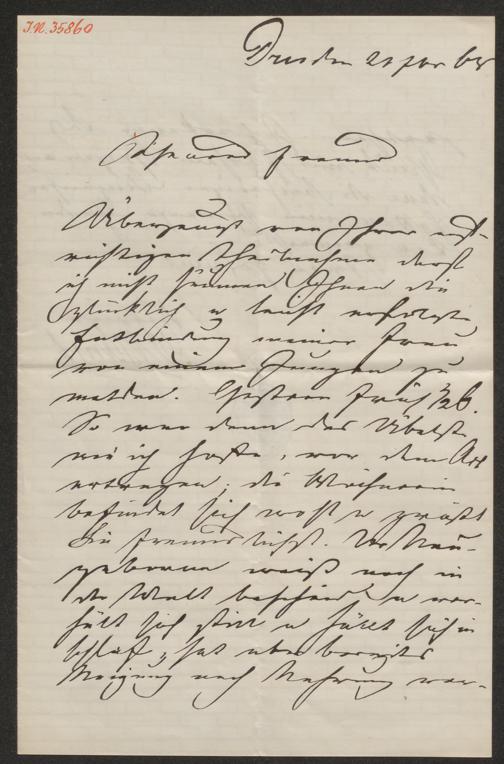 I.N. 35860
Dresden 21 Jan 68
Verehrter Freund
Überzeugt von Ihrer auf-
richtigen Theilnahme darf
ich nicht säumen Ihnen die
glücklich u leicht erfolgte
Entbindung meiner Frau
von einem Jungen zu
melden. Gestern Früh ½6.
So war denn das Übelste
wie ich hoffe, vor dem
ertragen; die Wöchnerin
befindet sich wohl u grüßt
Sie freundlichst. Der Neu-
geborene weiß noch in
der Welt bescheid u ver-
hält sich still u hüllt sich in
Schlaf, hat aber bereits
Neigung nach Nahrung ver-